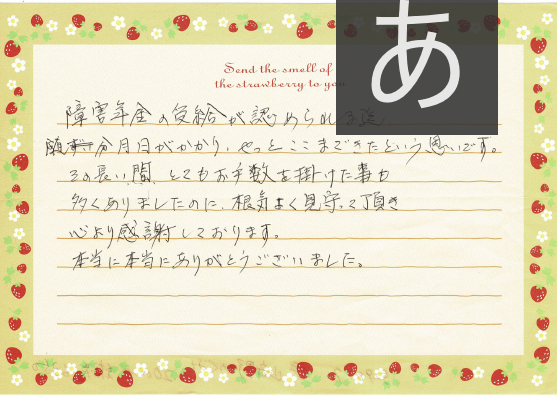 あ
Send the smell of
the strawberry to you
障害年金の受給が認められる迄
随分月日がかかり、やっとここまできたという思いです。
その長い間、とてもお手数を掛けた事も
多くありましたのに、根気よく見守って頂き
心より感謝しております。
本当に本当にありがとうございました。